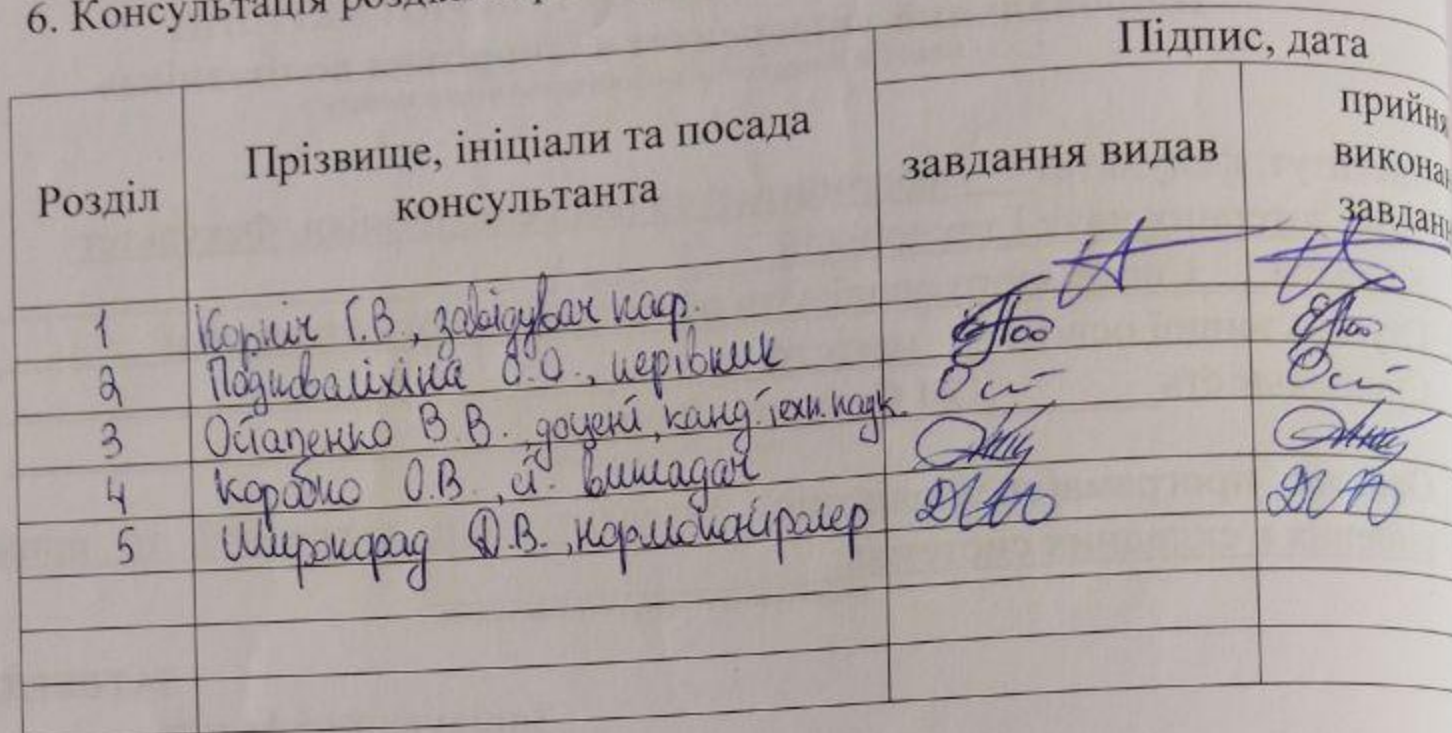 6. Консультація
Підпис, дата
Розділ
Прізвище, ініціали та посада
консультанта
завдання видав
прийня
викона
завданн
1 Корніч Г.В., завідувач каф.
2 Подковаліхіна О.О., керівник
3 Остапенко В.В., доцент, канд. техн. наук.
4 Коробко О.В., ст. викладач
5 Широкорад Д.В., нормоконтролер